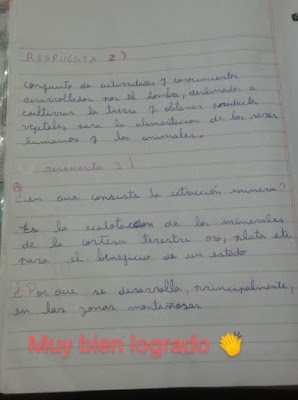 RESPUESTA 2)
Conjunto de actividades y conocimientos
desarrollados por el hombre, destinados a
cultivar la tierra y obtener productos
vegetales para la alimentacion de los seres
humanos y los animales.
respuesta 3)
¿en que consiste la extracción minera?
Es la explotacion de los minerales
de la cortesa terestre oro, plata etc
para el beneficio de un estado
¿Por que se desarrolla, principalmente,
en las zonas montañosas
Muy bien logrado 👏